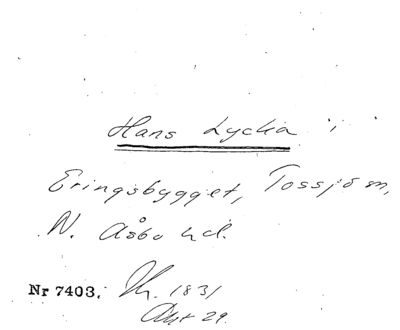 Hans Lycka i
Eringsbygget, Tossjö m,
N. Åsbo hd.
Nr 7403. 1831
Akt 29.